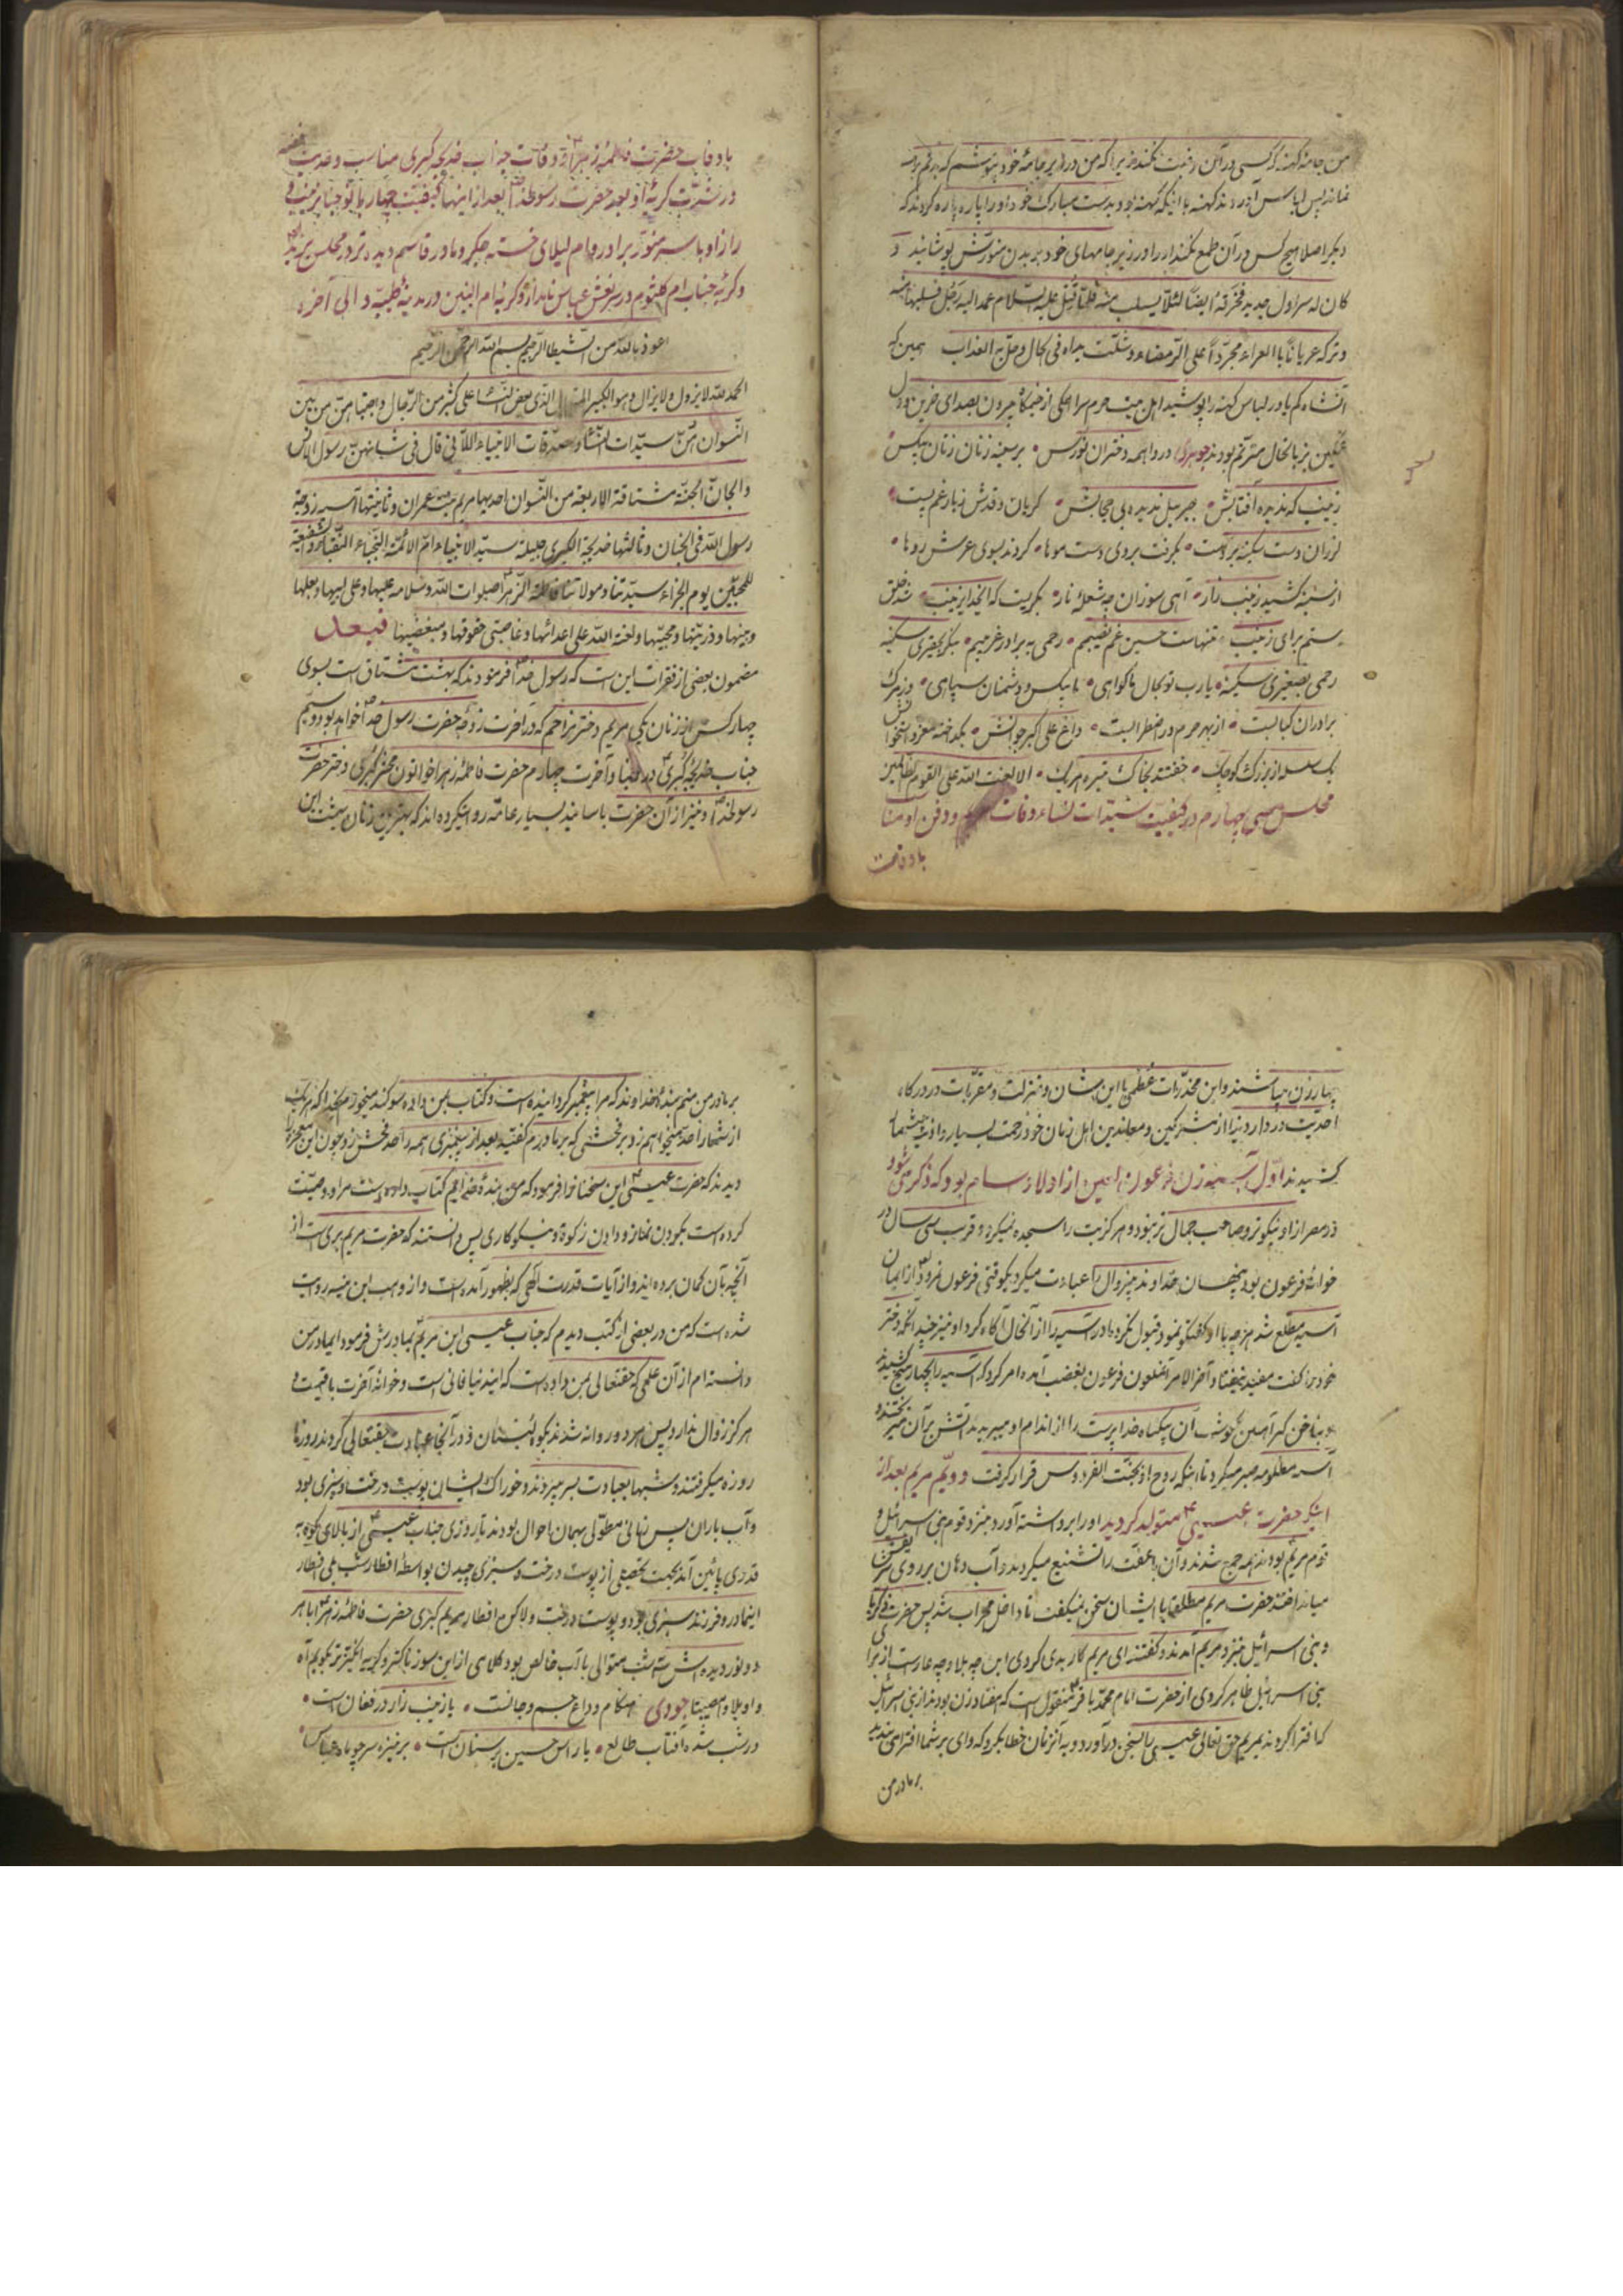 من جامهٔ کهنه که کسی در آن رغبت نکند زیرا که من در زیر جامهٔ خود بپوشم که برتنم
نماند پس لباس آوردند کهنه با اینکه کهنه بود بدست مبارک خود او را پاره پاره کردند که
دیگر اصلا هیچکس در آن طمع نکند او را در زیر جامهای خود بر بدن منورش پوشانید و
کان له سراول جدید فخرقه ایضاً لئلا یسلب منه فلما قتل علیه السلام عمد الیه رجل فسلبها منه
و ترکه عریاناً بالعراء مجرّداً علی الرّمضاء و شلّت یداه فی الحال و حلّ به العذاب همین که
آنشاه کم یاور لباس کهنه را پوشید اهل بیت حرم سرا همگی از خیمگاه بیرون بصدای حزین و دل
غمگین بزبانحال مترنم بودند جوهری در واهمه دختران نورس بر سینه زنان زنان بیکس
زینب که ندیده آفتابش جبریل ندیده بی حجابش گریان و قدش زبار غم پست
لرزان دست سکینه بر دست بگرفت بروی دست موها کردند بسوی عرش روها
از سینه کشید زینب زار آهی سوزان چه شعلهٔ نار بگریست که ای خدای زینب شد خلق
ستم برای زینب تنهاست حسین غم نصیبم رحمی به برادر غریبم
رحمی بصغیری سکینه یارب تو بحال ما گواهی ما بیکس و دشمنان سپاهی
برادران کبابست از بهر حرم در اضطرابست داغ علی اکبر جوانش بگداخته مغز استخوانش
یک سر از بزرگ و کوچک خفتند بخاک تیره هر یک الا لعنت الله علی القوم الظالمین
مجلس سی چهارم در کیفیت سیدات نساء وفات مریم و دفن او
با وفات
با وفات حضرت فاطمه زهرا و وفات جناب خدیجه کبری مناسب وصیت
در شدّت گریهٔ او بعد حضرت رسولخدا بعد از اینها کیفیت چهار بانو جناب زینب
راز او با سر منور برادر و ام لیلای خسته جگر و مادر قاسم دیده تر در مجلس یزید
و گریه جناب ام کلثوم در سر نعش عباس نامدار و گریه ام البنین در مدینه طیبه و الی آخره
اعوذ بالله من الشیطان الرجیم بسم الله الرحمن الرحیم
الحمد لله لا یزول و لا یزال و هو الکبیر المتعال الذی بعض النساء علی کثیر من الرّجال و اجتباهنّ من بین
النّسوان هنّ سیّدات النّساء و صدّقات الانبیاء اللاتی قال فی شانهنّ رسول الانس
و الجانّ الجنّة مشتاقة الاربعة من النّسوان احدیها مریم بنت عمران و ثانیتها آسیه زوجة
رسول الله فی الجنان و ثالثها خدیجة الکبری جلیلة سیّد الانبیاء امّ الائمّة النّجباء النّقباء و الشفیعة
للمحبّین یوم الجزاء سیّدتنا و مولاتنا فاطمة الزهرا صلوات الله و سلامه علیها و علی ابیها و بعلها
و بنیها و ذریّتها و محبیّها و لعنة الله علی اعدائها و غاصبی حقوقها و مبغضیها فبعد
مضمون بعضی از فقرات این است که رسول خدا فرمودند که بهشت مشتاق است بسوی
چهار کس از زنان یکی مریم دختر مزاحم که در آخرت زوجه حضرت رسول خدا خواهد بود و سیّم
جناب خدیجه کبری در دنیا و آخرت چهارم حضرت فاطمه زهرا خواتون محشر کبری دختر حضرت
رسولخدا و نیز از آن حضرت باسانید بسیار عامّه روایتکرده‌اند که بهترین زنان بهشت این
چهار زن میباشند و این مخدّرات عظمی با این شان و منزلت و مقرّبات در درگاه
احدیّت در دار دنیا از مشرکین و معاندین اهل زمان خود زحمت بسیار و اذیت
کشیدند اوّل آسیه زن فرعون لعین از اولاد سام بود که ذکر می شود
در مصر از او نیکوتر و صاحب جمال تر نبود و هر گز بت را سجده نمیکرد و قرب سی سال در
خوانهٔ فرعون بود پنهان خداوند بیزوال را عبادت میکرد یکوقتی فرعون مردود از ایمان
آسیه مطلع شد هر چه با او گفتگو نمود قبول نکرد مادر آسیه را از آنحال آگاه کرد او نیز
خود را گفت مفید نیفتاد آخر الامر آنملعون فرعون بغضب آمده امر کرد که آسیه را بچهار میخ کشیدند
و بناخن گیر آهنین گوشت آن بیگناه خدا پرست را از اندام او میبریدند
آسیه مظلومه صبر میکرد تا اینکه روح او بجنّت الفردوس قرار گرفت دویّم مریم بعد از
اینکه حضرت عیسی متولد گردید او را برداشته آورد و قوم بنی اسرائیل و
قوم مریم بودند همه جمع شدند و آن با عفّت را تشنیع میکردند و آب دهان بر روی
میانداختند حضرت مریم مطلقا با ایشان سخن نمیگفت تا داخل محراب شد پس حضرت زکریا
و بنی اسرائیل نیز نزد مریم آمدند و گفتند ای مریم کار بدی کردی این چه بلا و چه عار است از برای
بنی اسرائیل ظاهر کردی از حضرت امام محمّد باقر منقول است که هفتاد زن بودند از بنی اسرائیل
که افترا کردند بمریم حق تعالی عیسی را بسخن در آورد و به آنزنان خطاب کرد که وای بر شما افترا می بندید
بر مادر من
بر مادر من منم بندهٔ خداوند که مرا پیغمبر گردانیده است و کتاب بمن داده سوگند میخورم بخدا که هر یک
از شما را حدّ میخواهم زد بر فحشی که بر مادرم گفتید بعد از پیغمبری همه را حد فحش زد چون این معجزه را
دیدند که حضرت عیسی این سخنانرا فرمود که من بندهٔ خدایم کتاب داده است مرا و وصیّت
کرده است بکردن نماز و دادن زکوة و نیکوکاری پس دانستند که حضرت مریم بری است از
آنچه بآن گمان برده‌اند و از آیات قدرت الهی که بظهور آمده است و از وهب ابن منبه روایت
شده است که من در بعضی از کتب دیدم که جناب عیسی ابن مریم بمادرش فرمود ایمادر من
دانسته‌ام از آن علمی که حقتعالی بمن داده است که این دنیا فانی است و خوانهٔ آخرت باقیست و
هرگز زوال ندارد پس هر دو روانه شدند بکوه لبنان و در آنجا عبادت حقتعالی کردند روزها
روزه میگرفتند و شبها بعبادت بسر میبردند و خوراک ایشان پوست درخت و سبزی بود
و آب باران پس زمانی مطوّلی بهمان احوال بودند تا روزی جناب عیسی از بالای کوه به
قدری پائین آمد بجهت تحصیلی از پوست درخت و سبزی چیدن بواسطهٔ افطار شب بلی افطار
اینمادر و فرزند سبزی بود و پوست درخت ولاکن افطار مریم کبری حضرت فاطمه زهرا با هر
دو نور دیده‌اش سه شب متوالی با آب خالص بود کلامی از این سوزناکتر و گریه انگیزتر بگویم آه
واویلا و امصیبتا جودی هنگام وداع جسم و جانست باز زینب زار در فغان است
در شب شده آفتاب طالع یا راس حسین بر سنان است بر نیزه سر چو ماه عباس